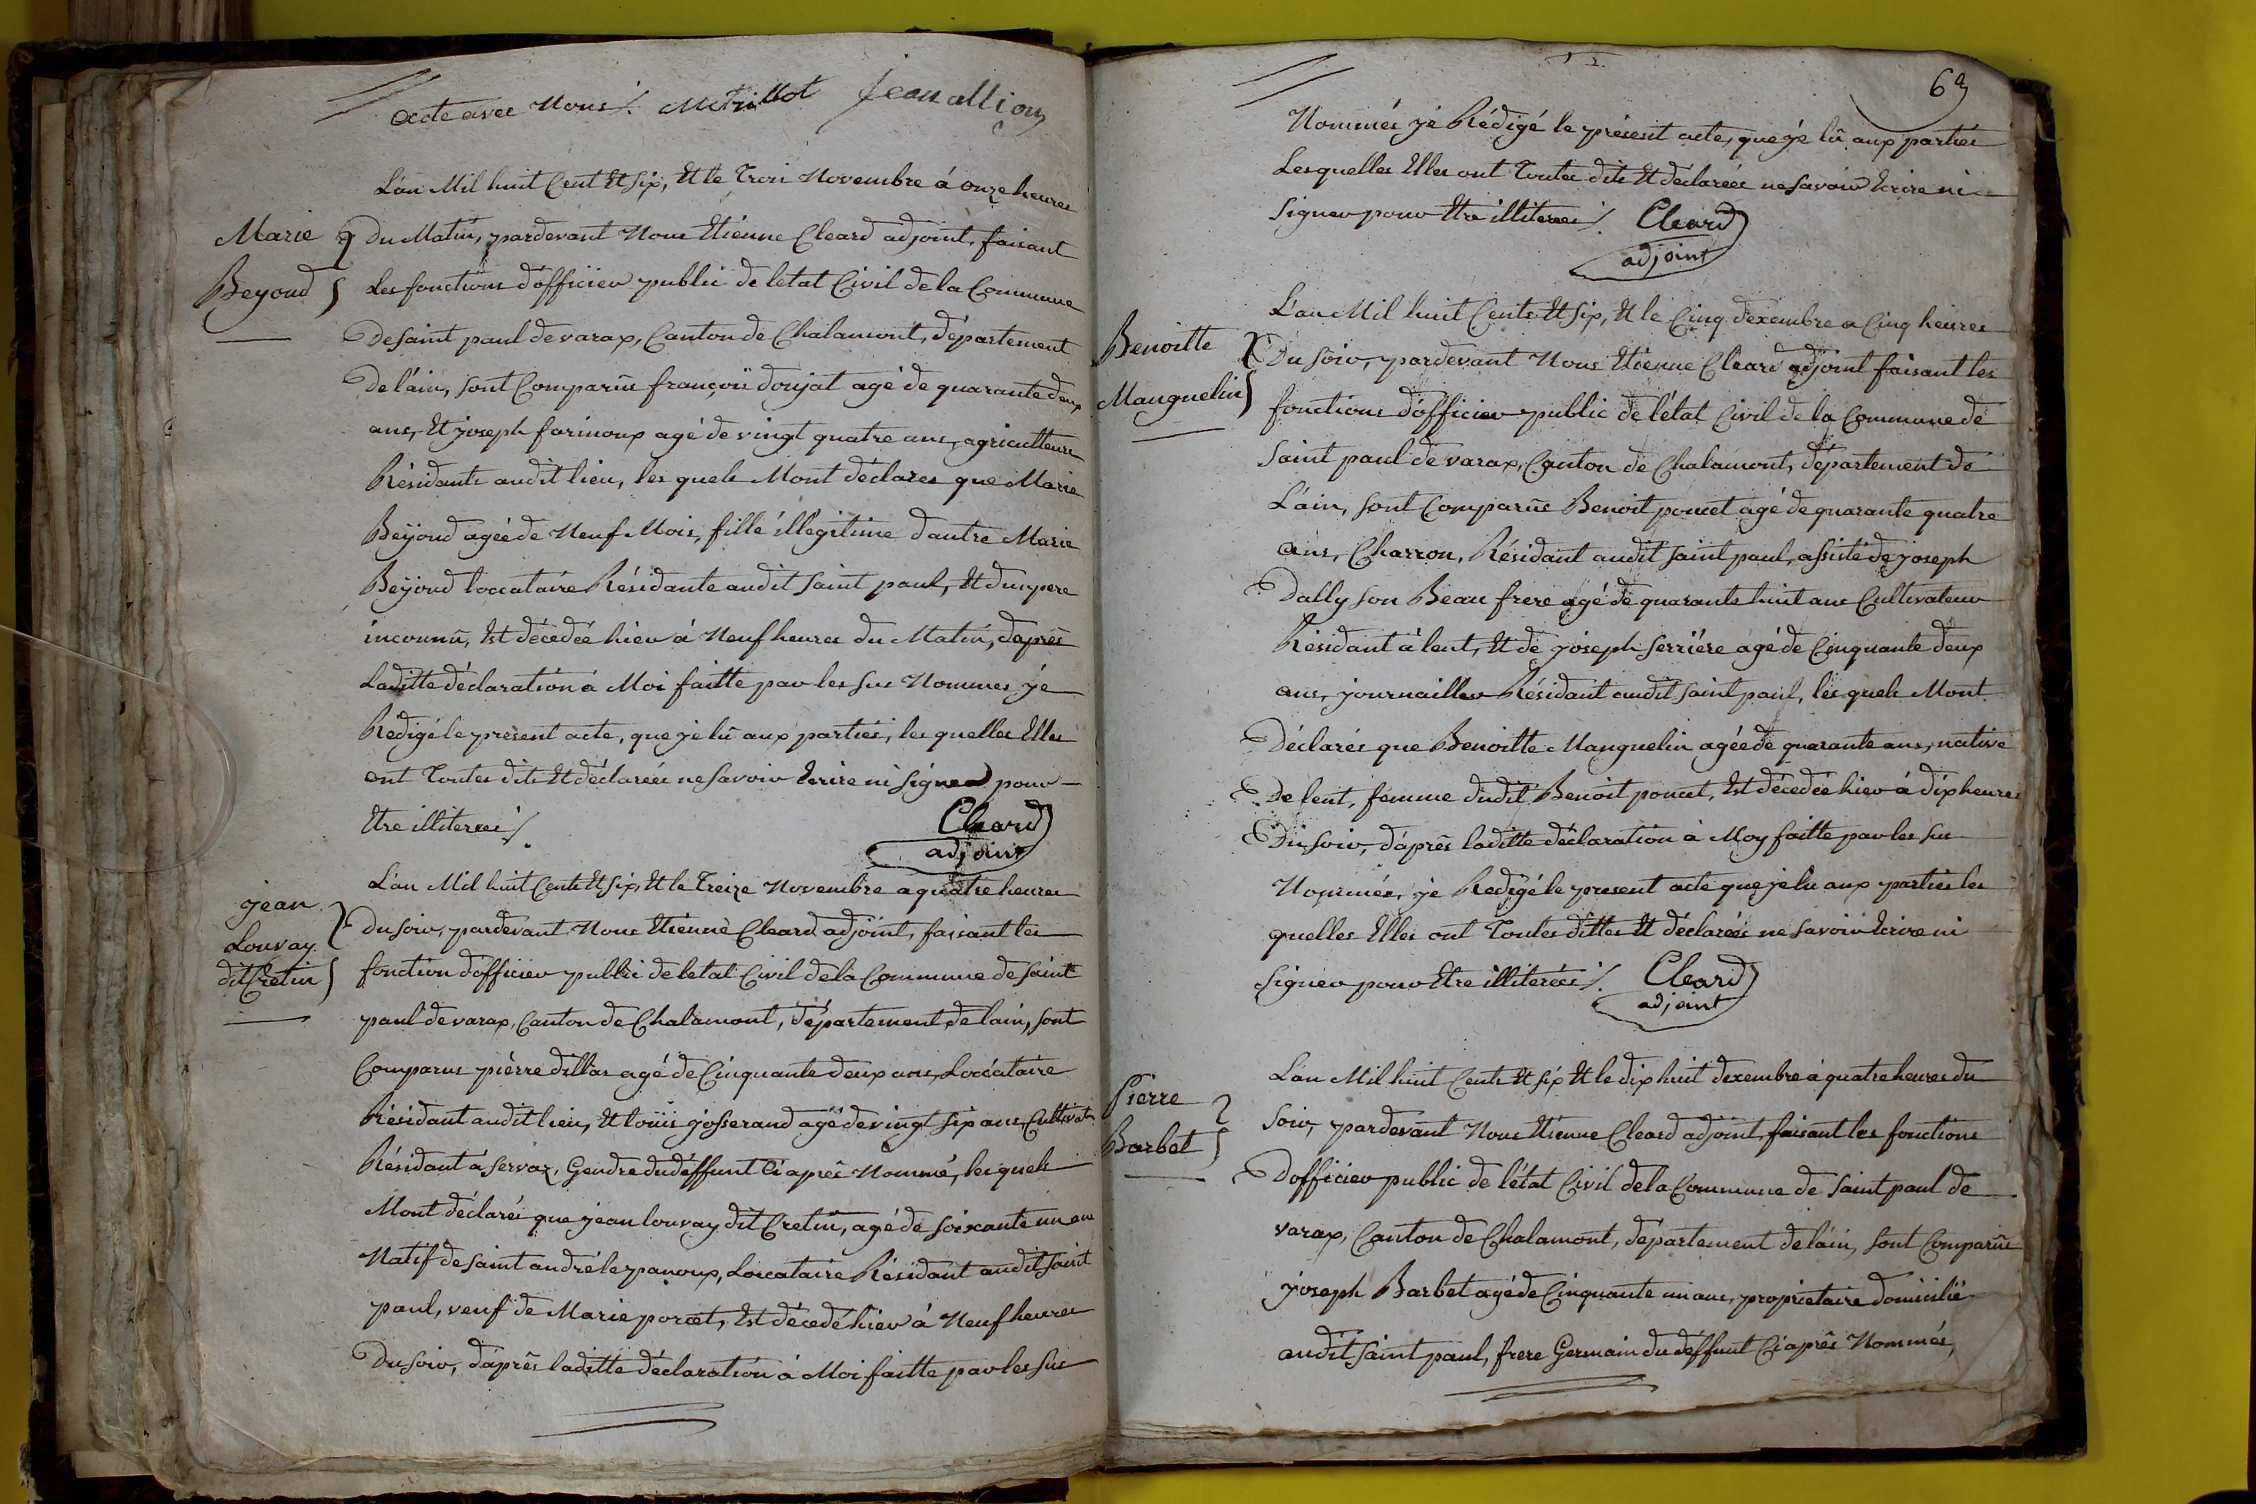 acte avec Nous ⁒. Metrillot jean allion
L'an Mil huit Cent Et Six, Et le Troi Novembre á onze heures
Marie
Beyoud
du Matin, pardevant Nous Etienne Cleard adjoint, faisant
Les fonctions d'officier public de letat Civil de la Commune
De saint paul de varax, Canton de Chalamont, département
De l'ain, sont Comparûs françois doujat agé de quarante deux
ans, Et joseph farinoux agé de vingt quatre ans, agriculteurs
Résidants audit lieu, les quels Mont déclares que Marie
Beÿoud agée de Neuf Mois, fille illégitime d'autre Marie
Beÿoud loccataire Résidante audit saint paul, Et dun pere
inconnû, Est décedée hier á Neuf heures du Matin, daprês
Laditte déclaration á Moi faitte par les sus Nommes jé
Rédigé le présent acte, que jé lû aux parties, les quelles Elles
ont Toutes dits Et déclarées ne savoir Ecrire ni signer pour
Etre illiterees ⁒.
Cleard
adjoint
jean
Louvay
dit Cretin
L'an Mil huit Cents Et six, Et le Treize Novembre a quatre heures
Du soir, pardevant Nous Etienne Cleard adjoint, faisant les
fonction d'officier public de letat Civil de la Commune de saint
paul de varax, Canton de Chalamont, département de lain, sont
Comparus pièrre dillas agé de Cinquante deux ans, Loccataire
Résidant audit lieu, Et louis josserand agé de vingt six ans, Cultivatr
Résidant á servaz, Gendre du déffunt Ci aprês Nommé, les quels
Mont déclarés que jean louvay dit Cretin, agé de soixante un ans
Natif de saint andré le panoux, Loccataire Résidant audit saint
paul, veuf de Marie porcet, Est décedé hier á Neuf heures
Du soir, d'aprês laditte déclaration á Moi faitte par les sus
69
Nommés jé Rédigé le présent acte, que jé lû aux parties
Lesquelles Elles ont Toutes dits Et déclarées ne savoir Ecrire ni
signer pour Etre illiterees ⁒.
Cleard
adjoint
Benoitte
Manguelin
L'an Mil huit Cents Et six, Et le Cinq dexembre a Cinq heures
Du soir, pardevant Nous Etienne Cleard adjoint faisant les
fonctions d'officier public de l'état Civil de la Commune de
saint paul de varax, Canton de Chalamont, département de
L'ain, sont Comparûs Benoit poncet agé de quarante quatre
ans, Charron, Résidant audit saint paul, assisté de joseph
Dally son Beau frere agé de quarante huit ans Cultivateur
Résidant á lent, Et de joseph serriére agé de Cinquante deux
ans, journaillier Résidant audit saint paul, les quels Mont
Déclarés que Benoitte Manguelin agée de quarante ans, native
De lent, femme dudit Benoit poncet, Est décedée hier á dix heures
Du soir, d'aprês laditte déclaration á Moy faitte par les sus
Nommés, jé Redigé le present acte que jé lu aux parties les
quelles Elles ont Toutes dittes Et déclarées ne savoir Ecrire ni
signer pour Etre illiterées ⁒.
Cleard
adjoint
Pierre
Barbet
L'an Mil huit Cents Et six Et le dix huit dexembre á quatre heures du
soir, pardevant Nous Etienne Cleard adjoint, faisant les fonctions
D'officier public de l'état Civil de la Commune de saint paul de
varax, Canton de Chalamont, département de lain, sont Comparûs
joseph Barbet agé de Cinquante un ans, proprietaire domicilié
audit saint paul, frere Germain du déffunt Ci aprês Nommés,